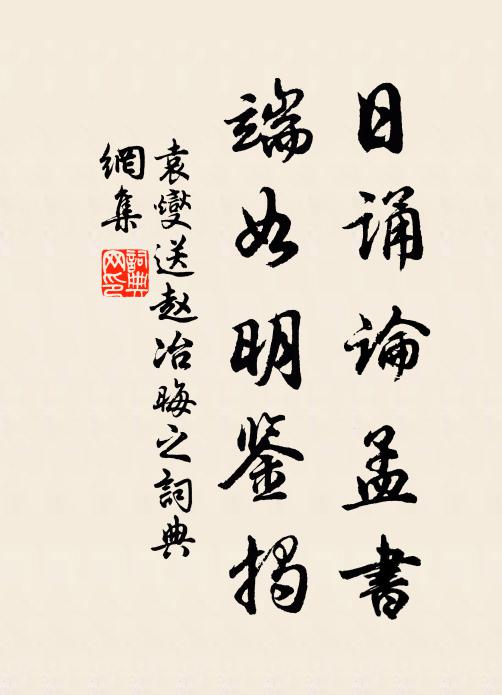 日诵论孟书
端如明鉴揭
袁燮送赵冶晦之詞典
網集
詞典網印